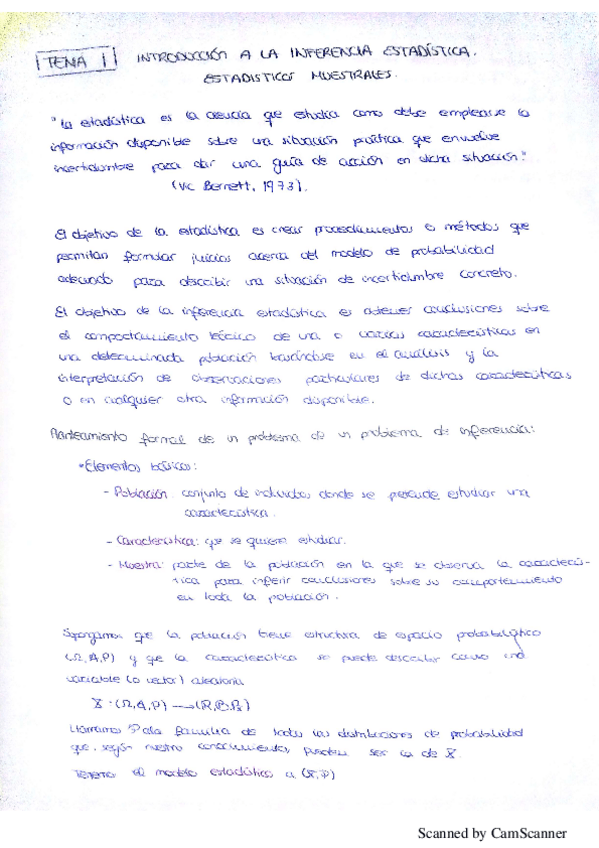 TEMA 1 INTRODUCCIÓN A LA INFERENCIA ESTADÍSTICA.
ESTADISTICOS MUESTRALES.
"La estadística es la ciencia que estudia como debe emplearse la
información disponible sobre una situación práctica que envuelve
incertidumbre para dar una guía de acción en dicha situación."
(Vic Bernett, 1973).
El objetivo de la estadística es crear procedimientos o métodos que
permitan formular juicios acerca del modelo de probabilidad
adecuado para describir una situación de incertidumbre concreto.
El objetivo de la inferencia estadística es obtener conclusiones sobre
el comportamiento teórico de una o varias características en
una determinada población basándose en el análisis y la
interpretación de observaciones particulares de dichas características
o en cualquier otra información disponible.
Planteamiento formal de un problema de un problema de inferencia:
*Elementos básicos:
- Población: conjunto de individuos donde se pretende estudiar una
característica.
- Característica: que se quiere estudiar.
- Muestra: parte de la población en la que se observa la caracterís-
tica para inferir conclusiones sobre su comportamiento
en toda la población.
Supongamos que la población tiene estructura de espacio probabilístico
(Ω,A,P) y que la característica se puede describir como una
variable (o vector) aleatoria
X:(Ω,A,P)→(R,B,P)
Llamamos P a la familia de todas las distribuciones de probabilidad
que, según nuestro conocimiento, pueden ser la de X.
Tenemos el modelo estadístico a (X,P)
Scanned by CamScanner